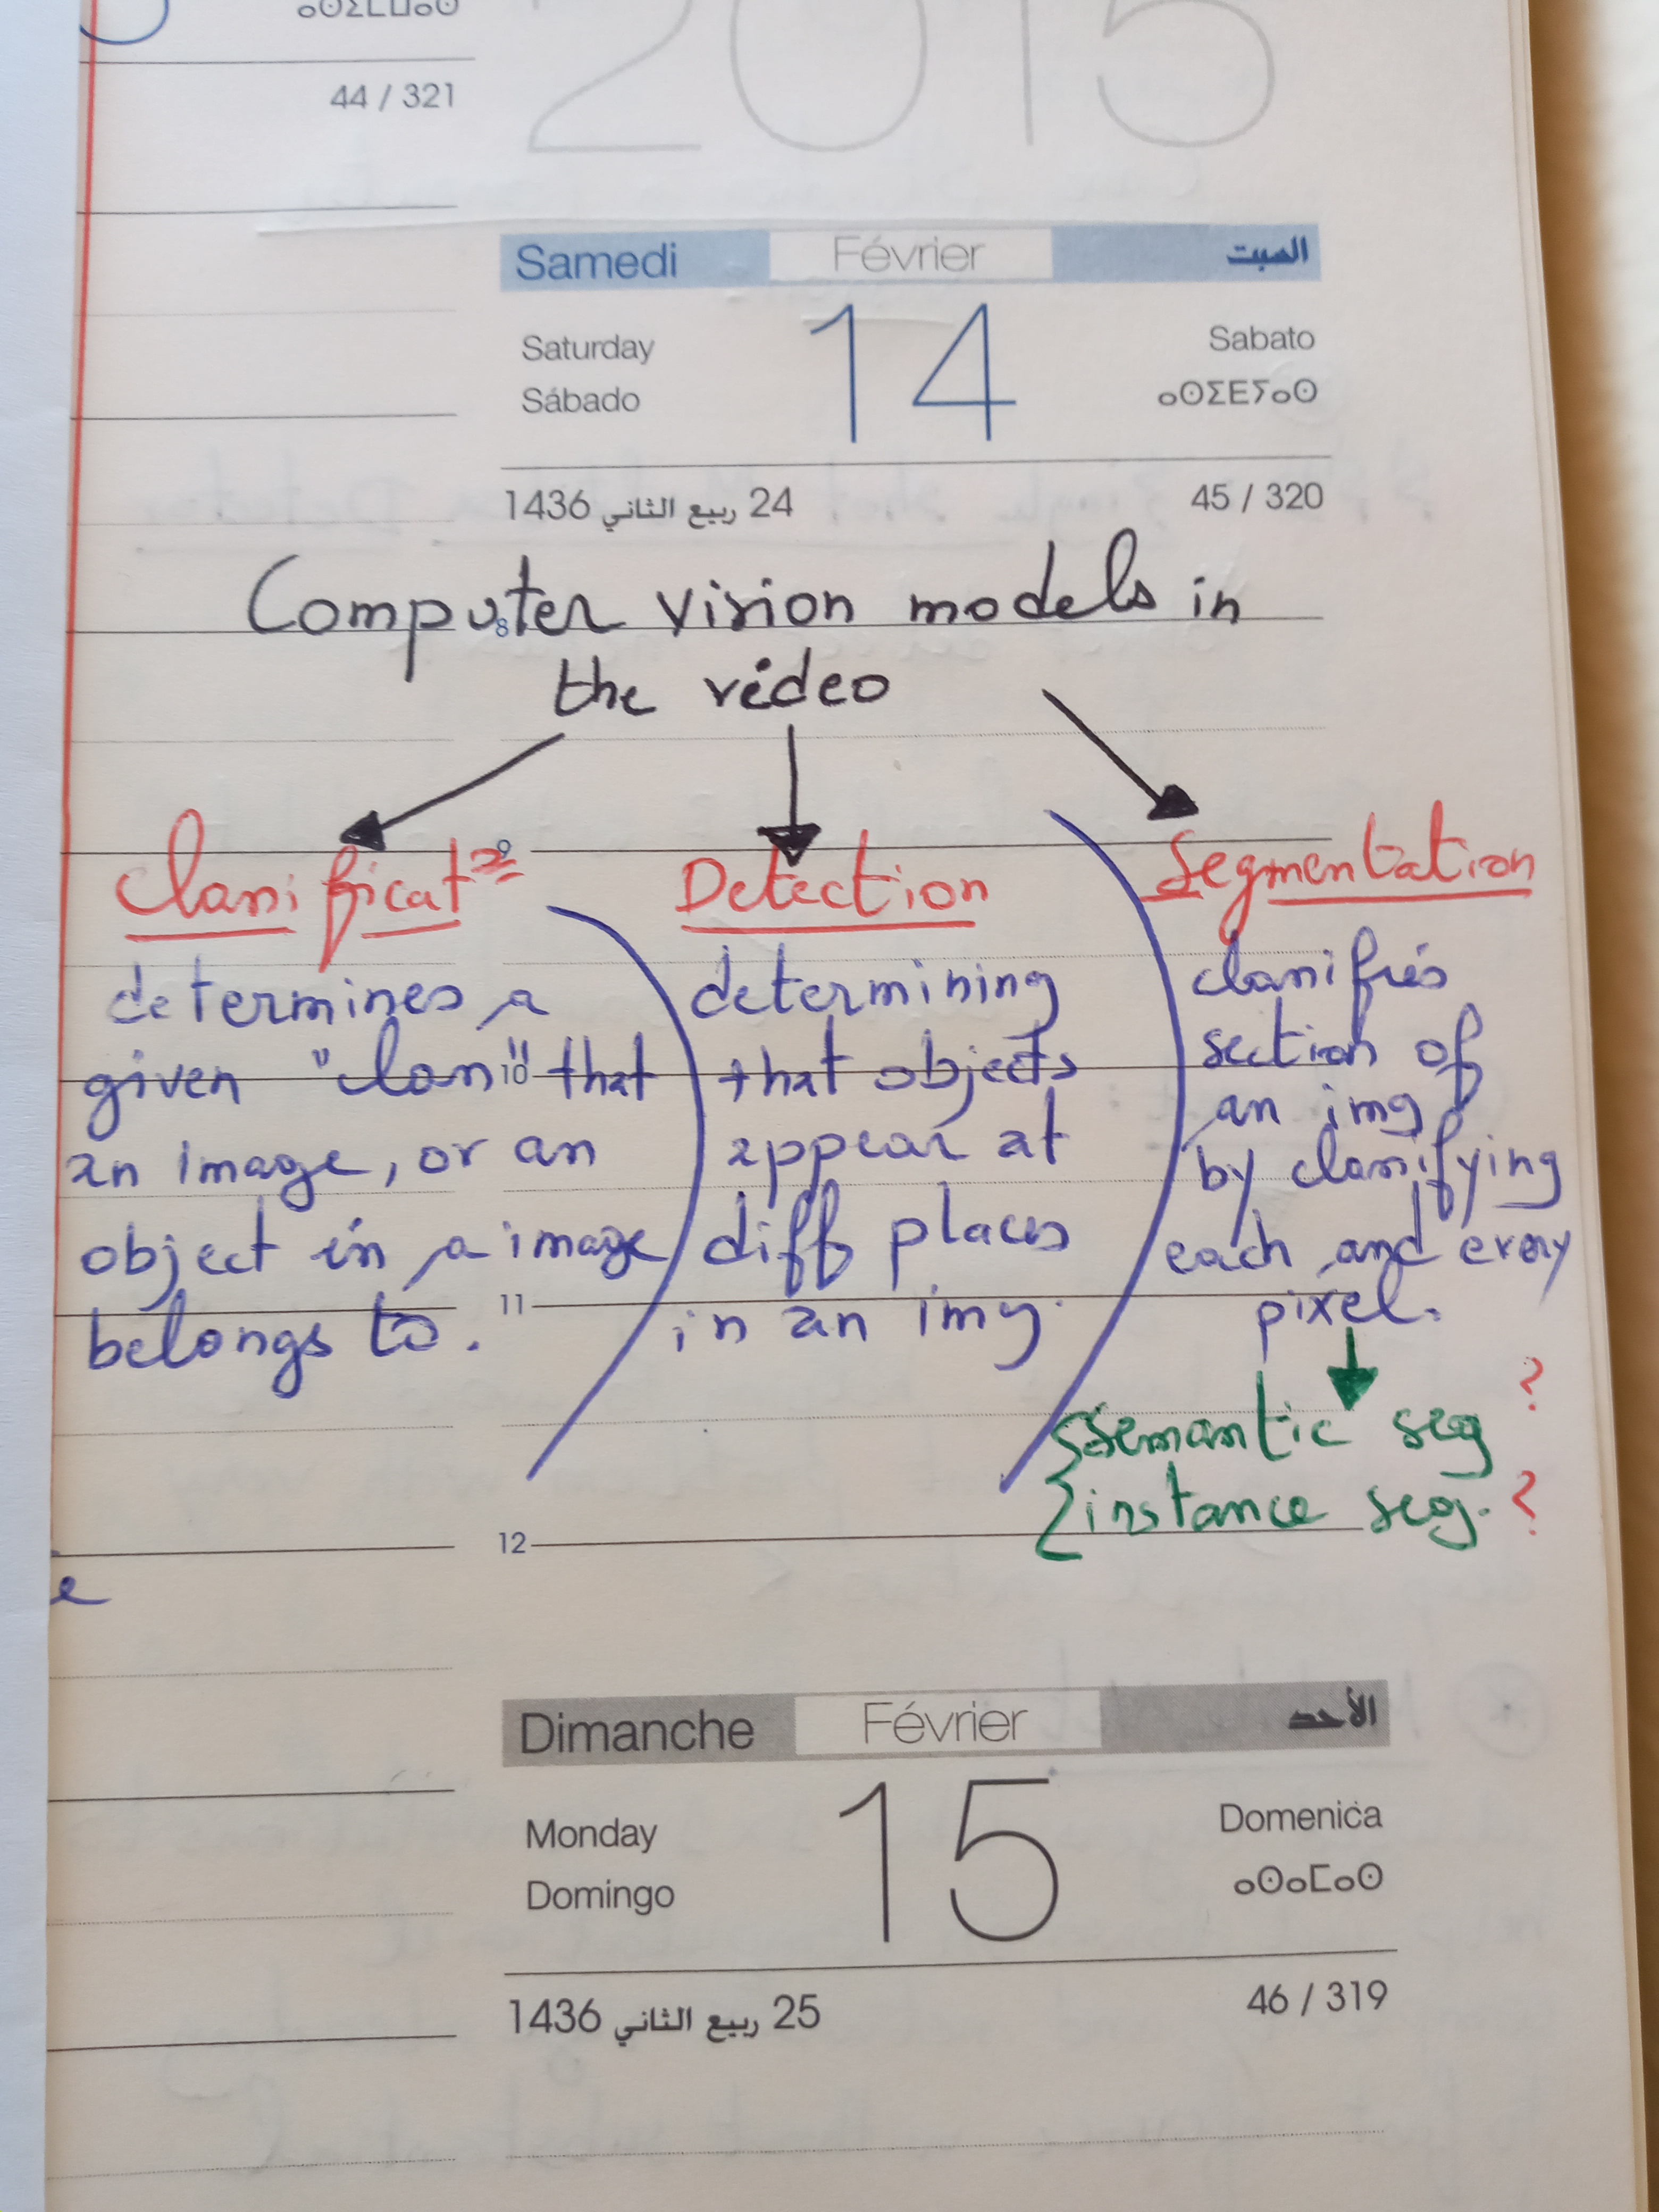 ⴰⵙⵉⵎⵡⴰⵙ
44 / 321
2015
Samedi Février السبت
Saturday 14 Sabato
Sábado ⴰⵙⵉⴹⵢⴰⵙ
24 ربيع الثاني 1436 45 / 320
8
Computer vision models in
the video
9
Classificat°
determines a
given "class" that
an image, or an
object in a image
belongs to.
Detection
determining
that objects
appear at
diff places
in an img.
Segmentation
classifies
section of
an img
by classifying
each and every
pixel.
semantic seg ?
instance seg. ?
10
11
12
e
Dimanche Février الأحد
Monday 15 Domenica
Domingo ⴰⵙⴰⵎⴰⵙ
25 ربيع الثاني 1436 46 / 319